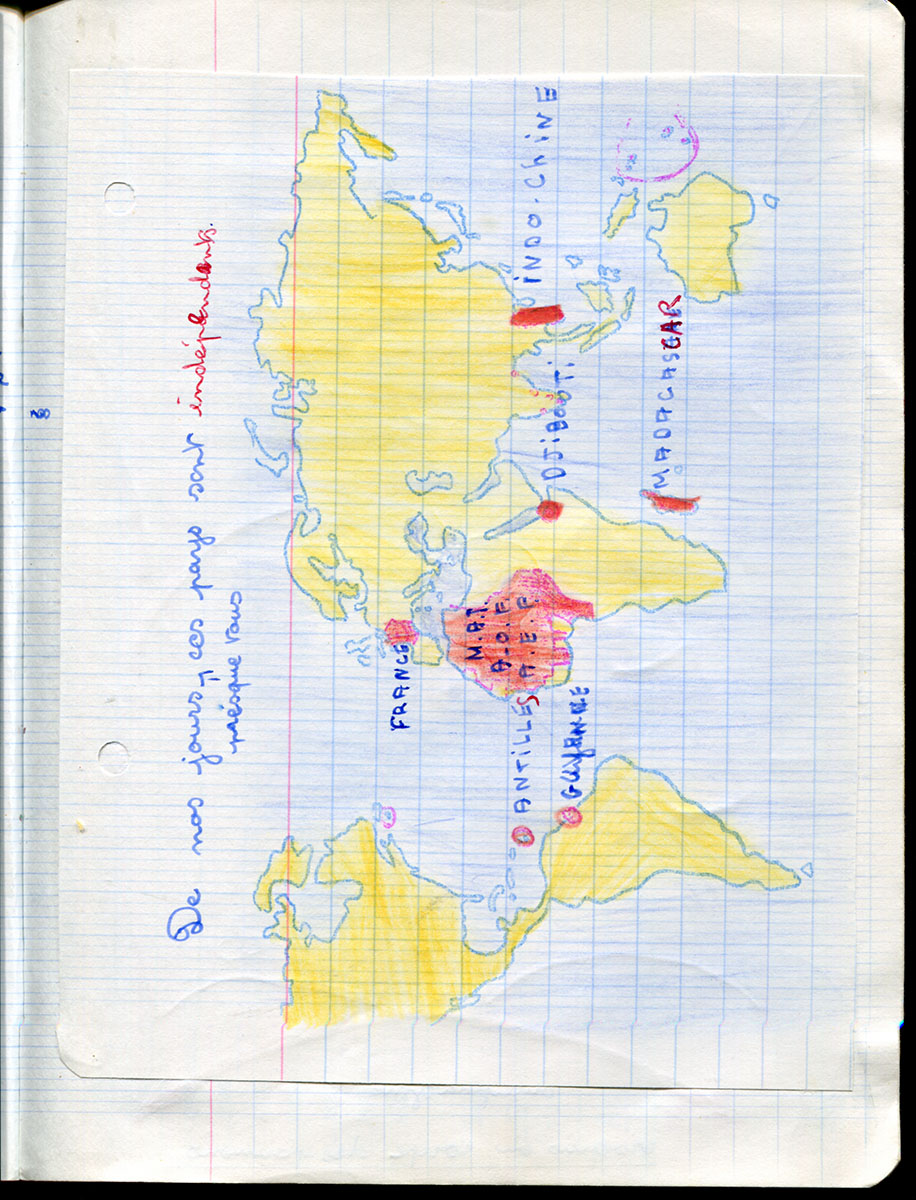 De nos jours, ces pays sont indépendants.
présque tous
FRANCE
M.A.T.
A.O.F.
A.E.F.
ANTILLES
GUYANNE
DJIBOUTI
INDO.CHINE
MADAGASCAR
8